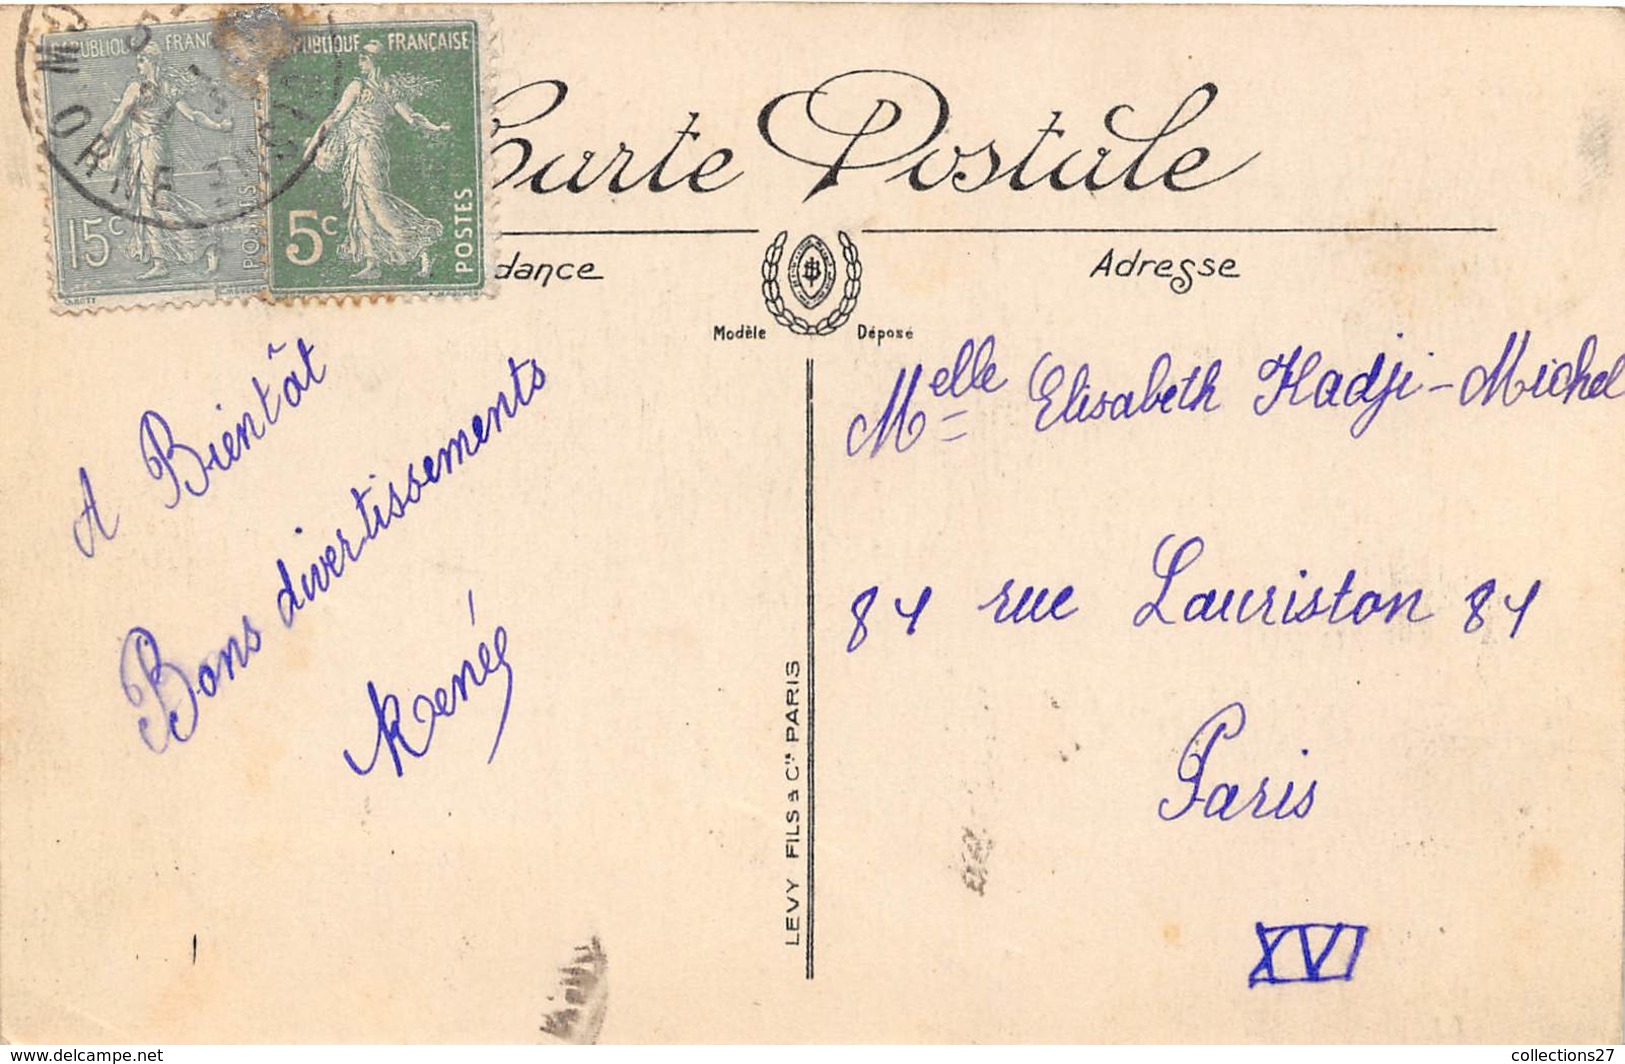 RÉPUBLIQUE FRANÇAISE
15c
POSTES
RÉPUBLIQUE FRANÇAISE
5c
POSTES
ORNE
Carte Postale
dance
Adresse
Modèle Déposé
A Bientôt
Bons divertissements
Renée
Melle Elisabeth Hadji-Michel
84 rue Lauriston 84
Paris
XVI
LEVY FILS & Cie PARIS
https://www.delcampe.net
collections27